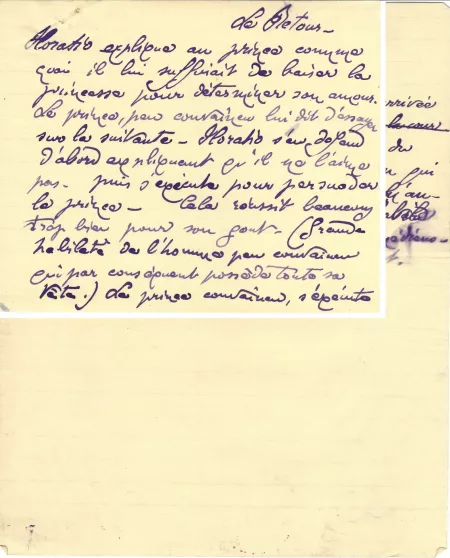 Le Retour_
Horatio explique au prince comme
quoi il lui suffirait de baiser la
princesse pour déterminer son amour.
Le prince, peu convaincu lui dit d'essayer
sur la suivante - Horatio s'en défend
d'abord expliquant qu'il ne l'aime
pas - puis s'exécute pour persuader
le prince - Cela réussit beaucoup
trop bien pour son gout. (Grande
habileté de l'homme peu convaincu
qui par conséquent possède toute sa
tête.) Le prince convaincu, s'exécute
rrivée
la cour
du
qui